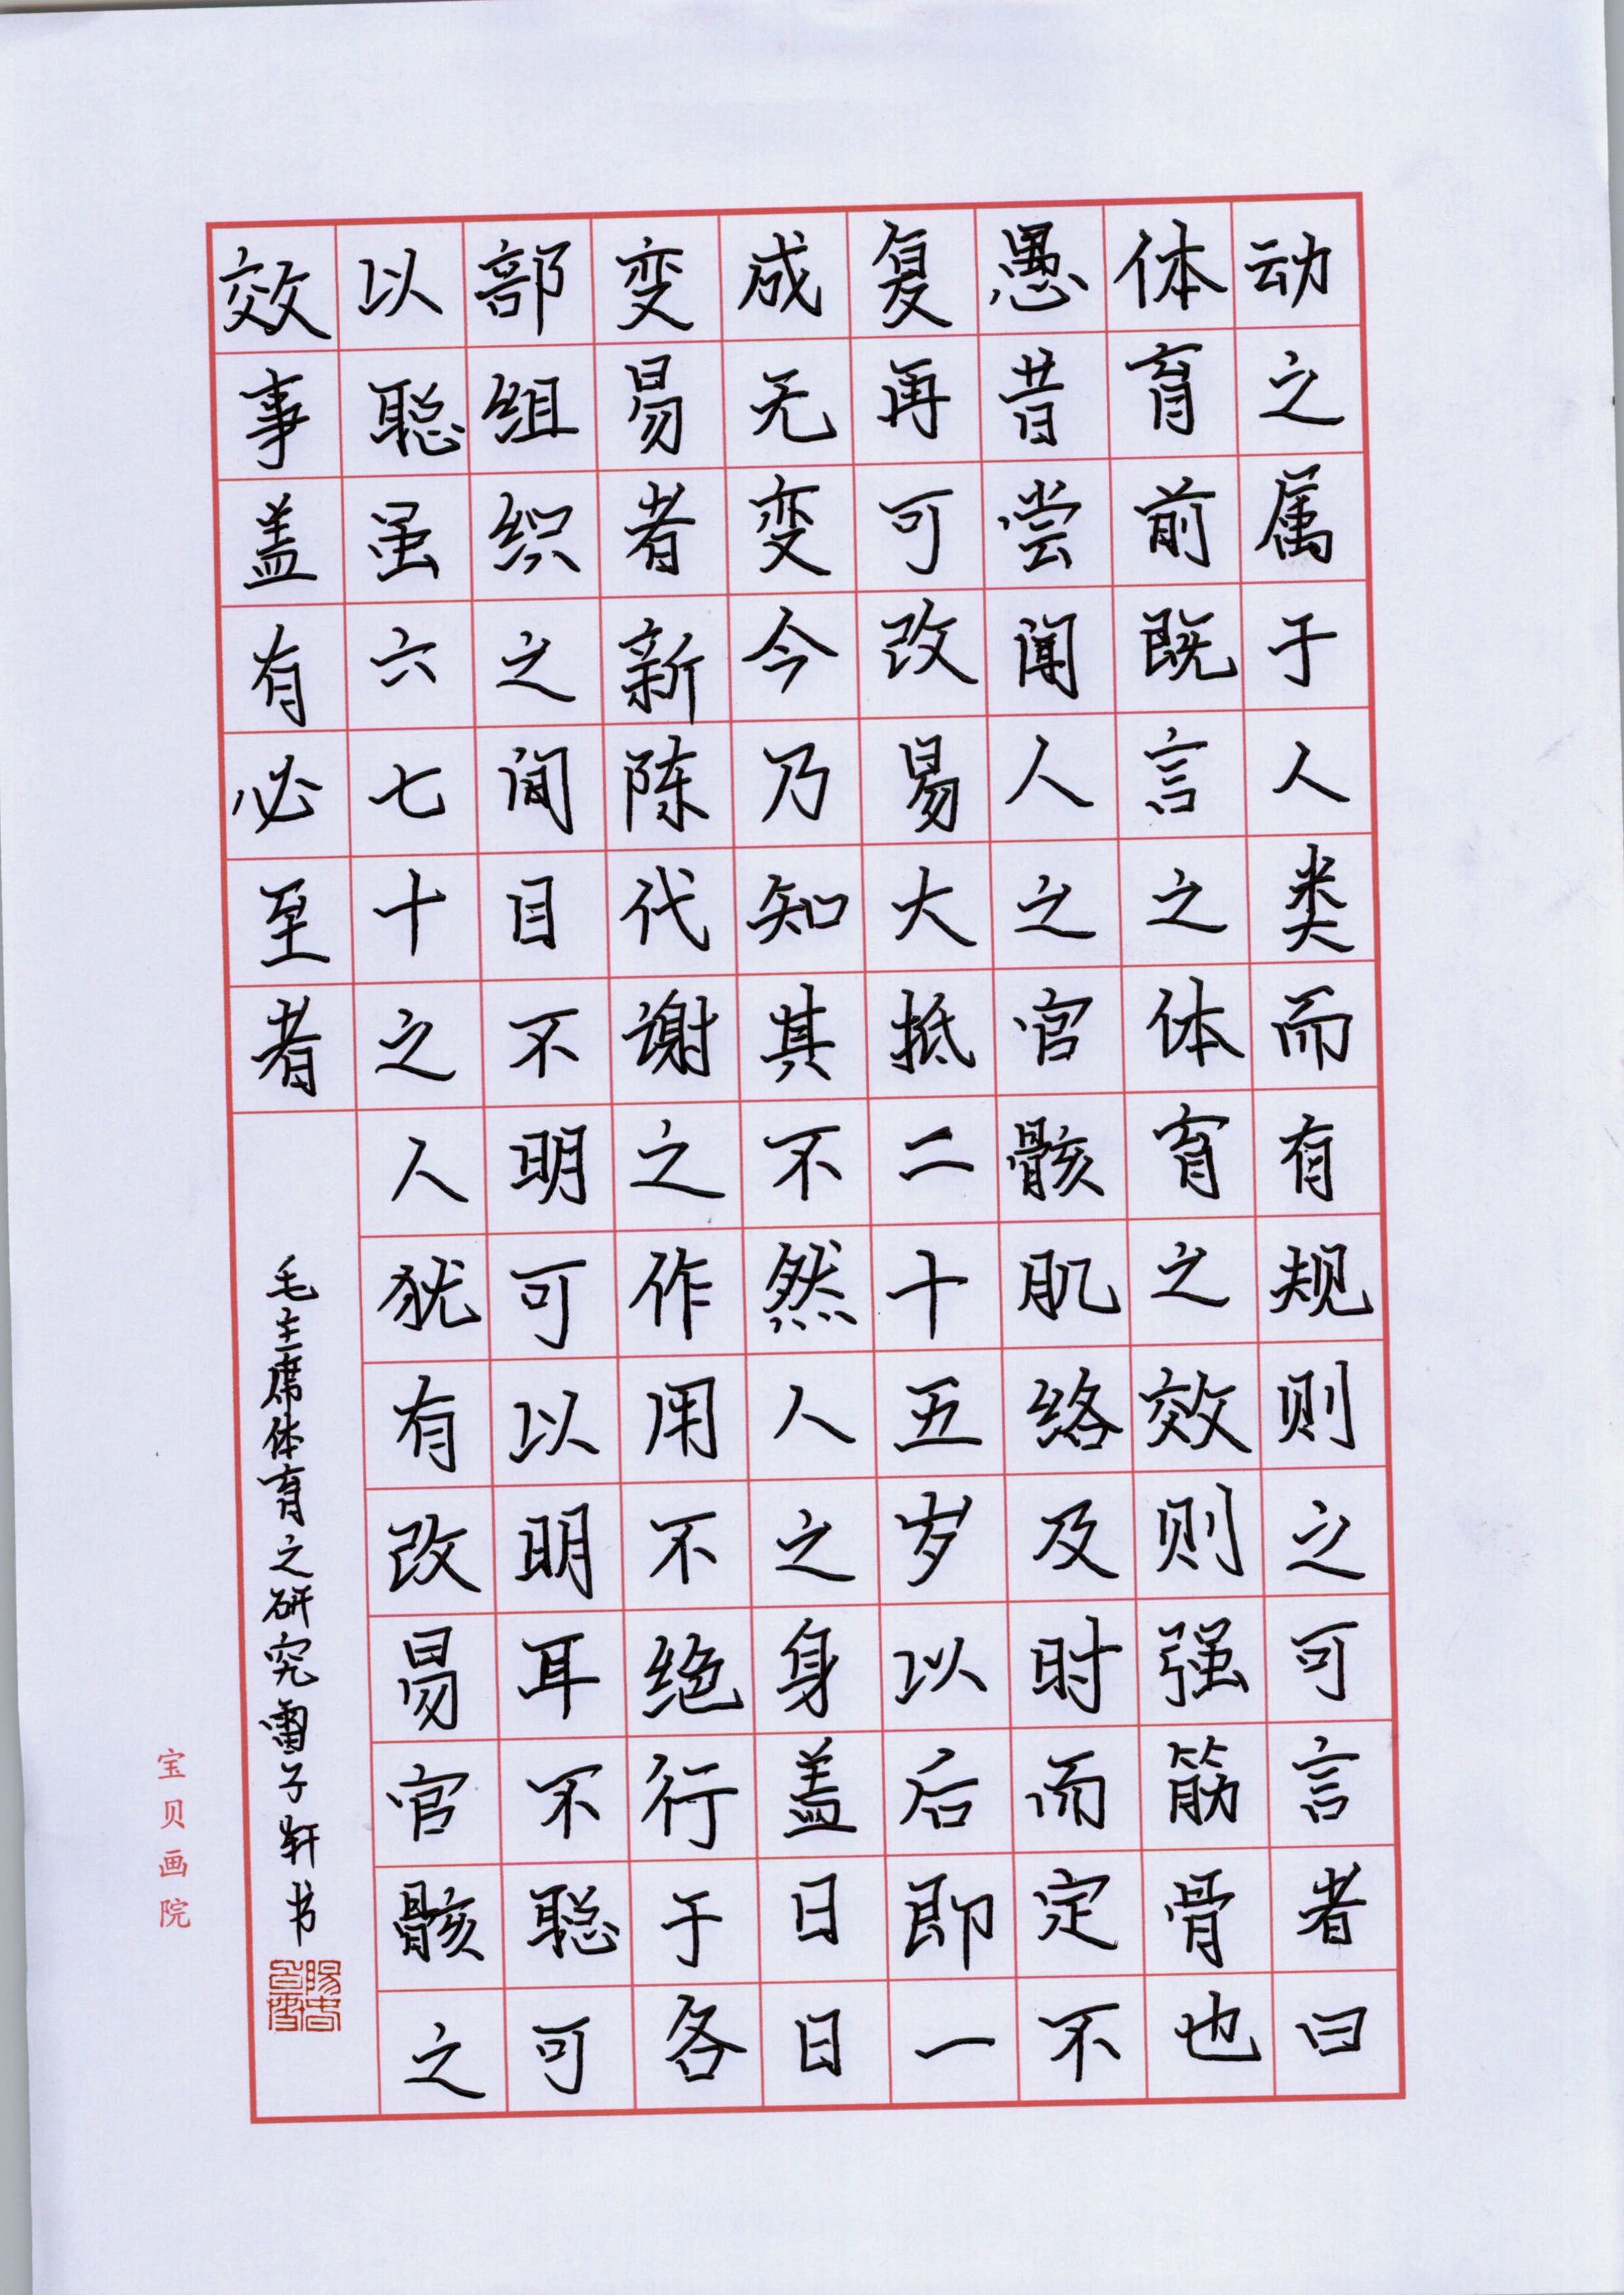 动之属于人类而有规则之可言者曰
体育前既言之体育之效则强筋骨也
愚昔尝闻人之官骸肌络及时而定不
复再可改易大抵二十五岁以后即一
成无变今乃知其不然人之身盖日日
变易者新陈代谢之作用不绝行于各
部组织之间目不明可以明耳不聪可
以聪虽六七十之人犹有改易官骸之
效事盖有必至者
毛主席体育之研究雷子轩书
宝贝画院